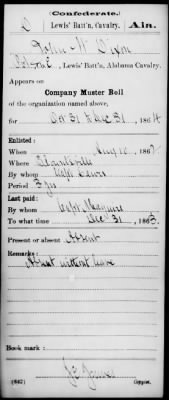 (Confederate.)
D Lewis' Batt'n, Cavalry. Ala.
John W Dixon
Lewis' Batt'n, Alabama Cavalry.
Appears on
Company Muster Roll
of the organization named above,
for Oct 31 to Dec 31, 1864
Enlisted:
When 10, 186
Where
By whom Capt Lewis
Period 3 yrs
Last paid:
By whom Capt
To what time Dec 31, 1863.
Present or absent Absent
Remarks:
Absent without leave
Book mark:
(642) Copyist.